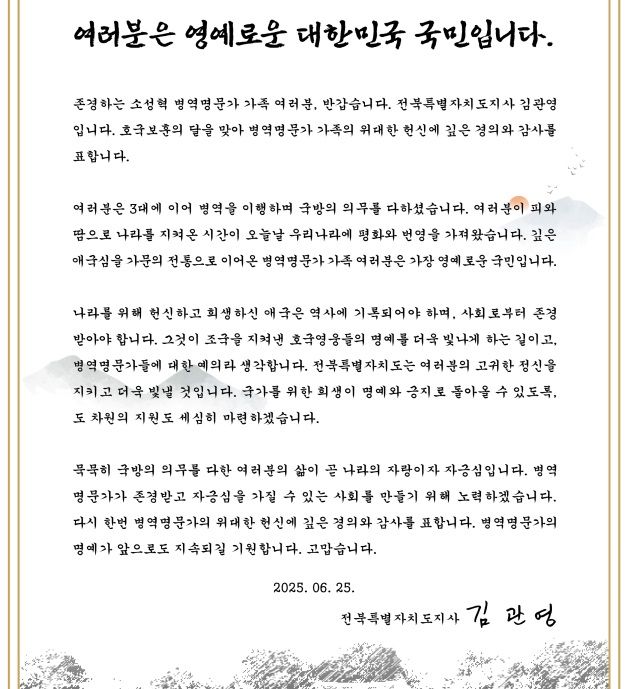 여러분은 영예로운 대한민국 국민입니다.
존경하는 소성혁 병역명문가 가족 여러분, 반갑습니다. 전북특별자치도지사 김관영
입니다. 호국보훈의 달을 맞아 병역명문가 가족의 위대한 헌신에 깊은 경의와 감사를
표합니다.
여러분은 3대에 이어 병역을 이행하며 국방의 의무를 다하셨습니다. 여러분이 피와
땀으로 나라를 지켜온 시간이 오늘날 우리나라에 평화와 번영을 가져왔습니다. 깊은
애국심을 가문의 전통으로 이어온 병역명문가 가족 여러분은 가장 영예로운 국민입니다.
나라를 위해 헌신하고 희생하신 애국은 역사에 기록되어야 하며, 사회로부터 존경
받아야 합니다. 그것이 조국을 지켜낸 호국영웅들의 명예를 더욱 빛나게 하는 길이고,
병역명문가들에 대한 예의라 생각합니다. 전북특별자치도는 여러분의 고귀한 정신을
지키고 더욱 빛낼 것입니다. 국가를 위한 희생이 명예와 긍지로 돌아올 수 있도록,
도 차원의 지원도 세심히 마련하겠습니다.
묵묵히 국방의 의무를 다한 여러분의 삶이 곧 나라의 자랑이자 자긍심입니다. 병역
명문가가 존경받고 자긍심을 가질 수 있는 사회를 만들기 위해 노력하겠습니다.
다시 한번 병역명문가의 위대한 헌신에 깊은 경의와 감사를 표합니다. 병역명문가의
명예가 앞으로도 지속되길 기원합니다. 고맙습니다.
2025. 06. 25.
전북특별자치도지사 김 관 영